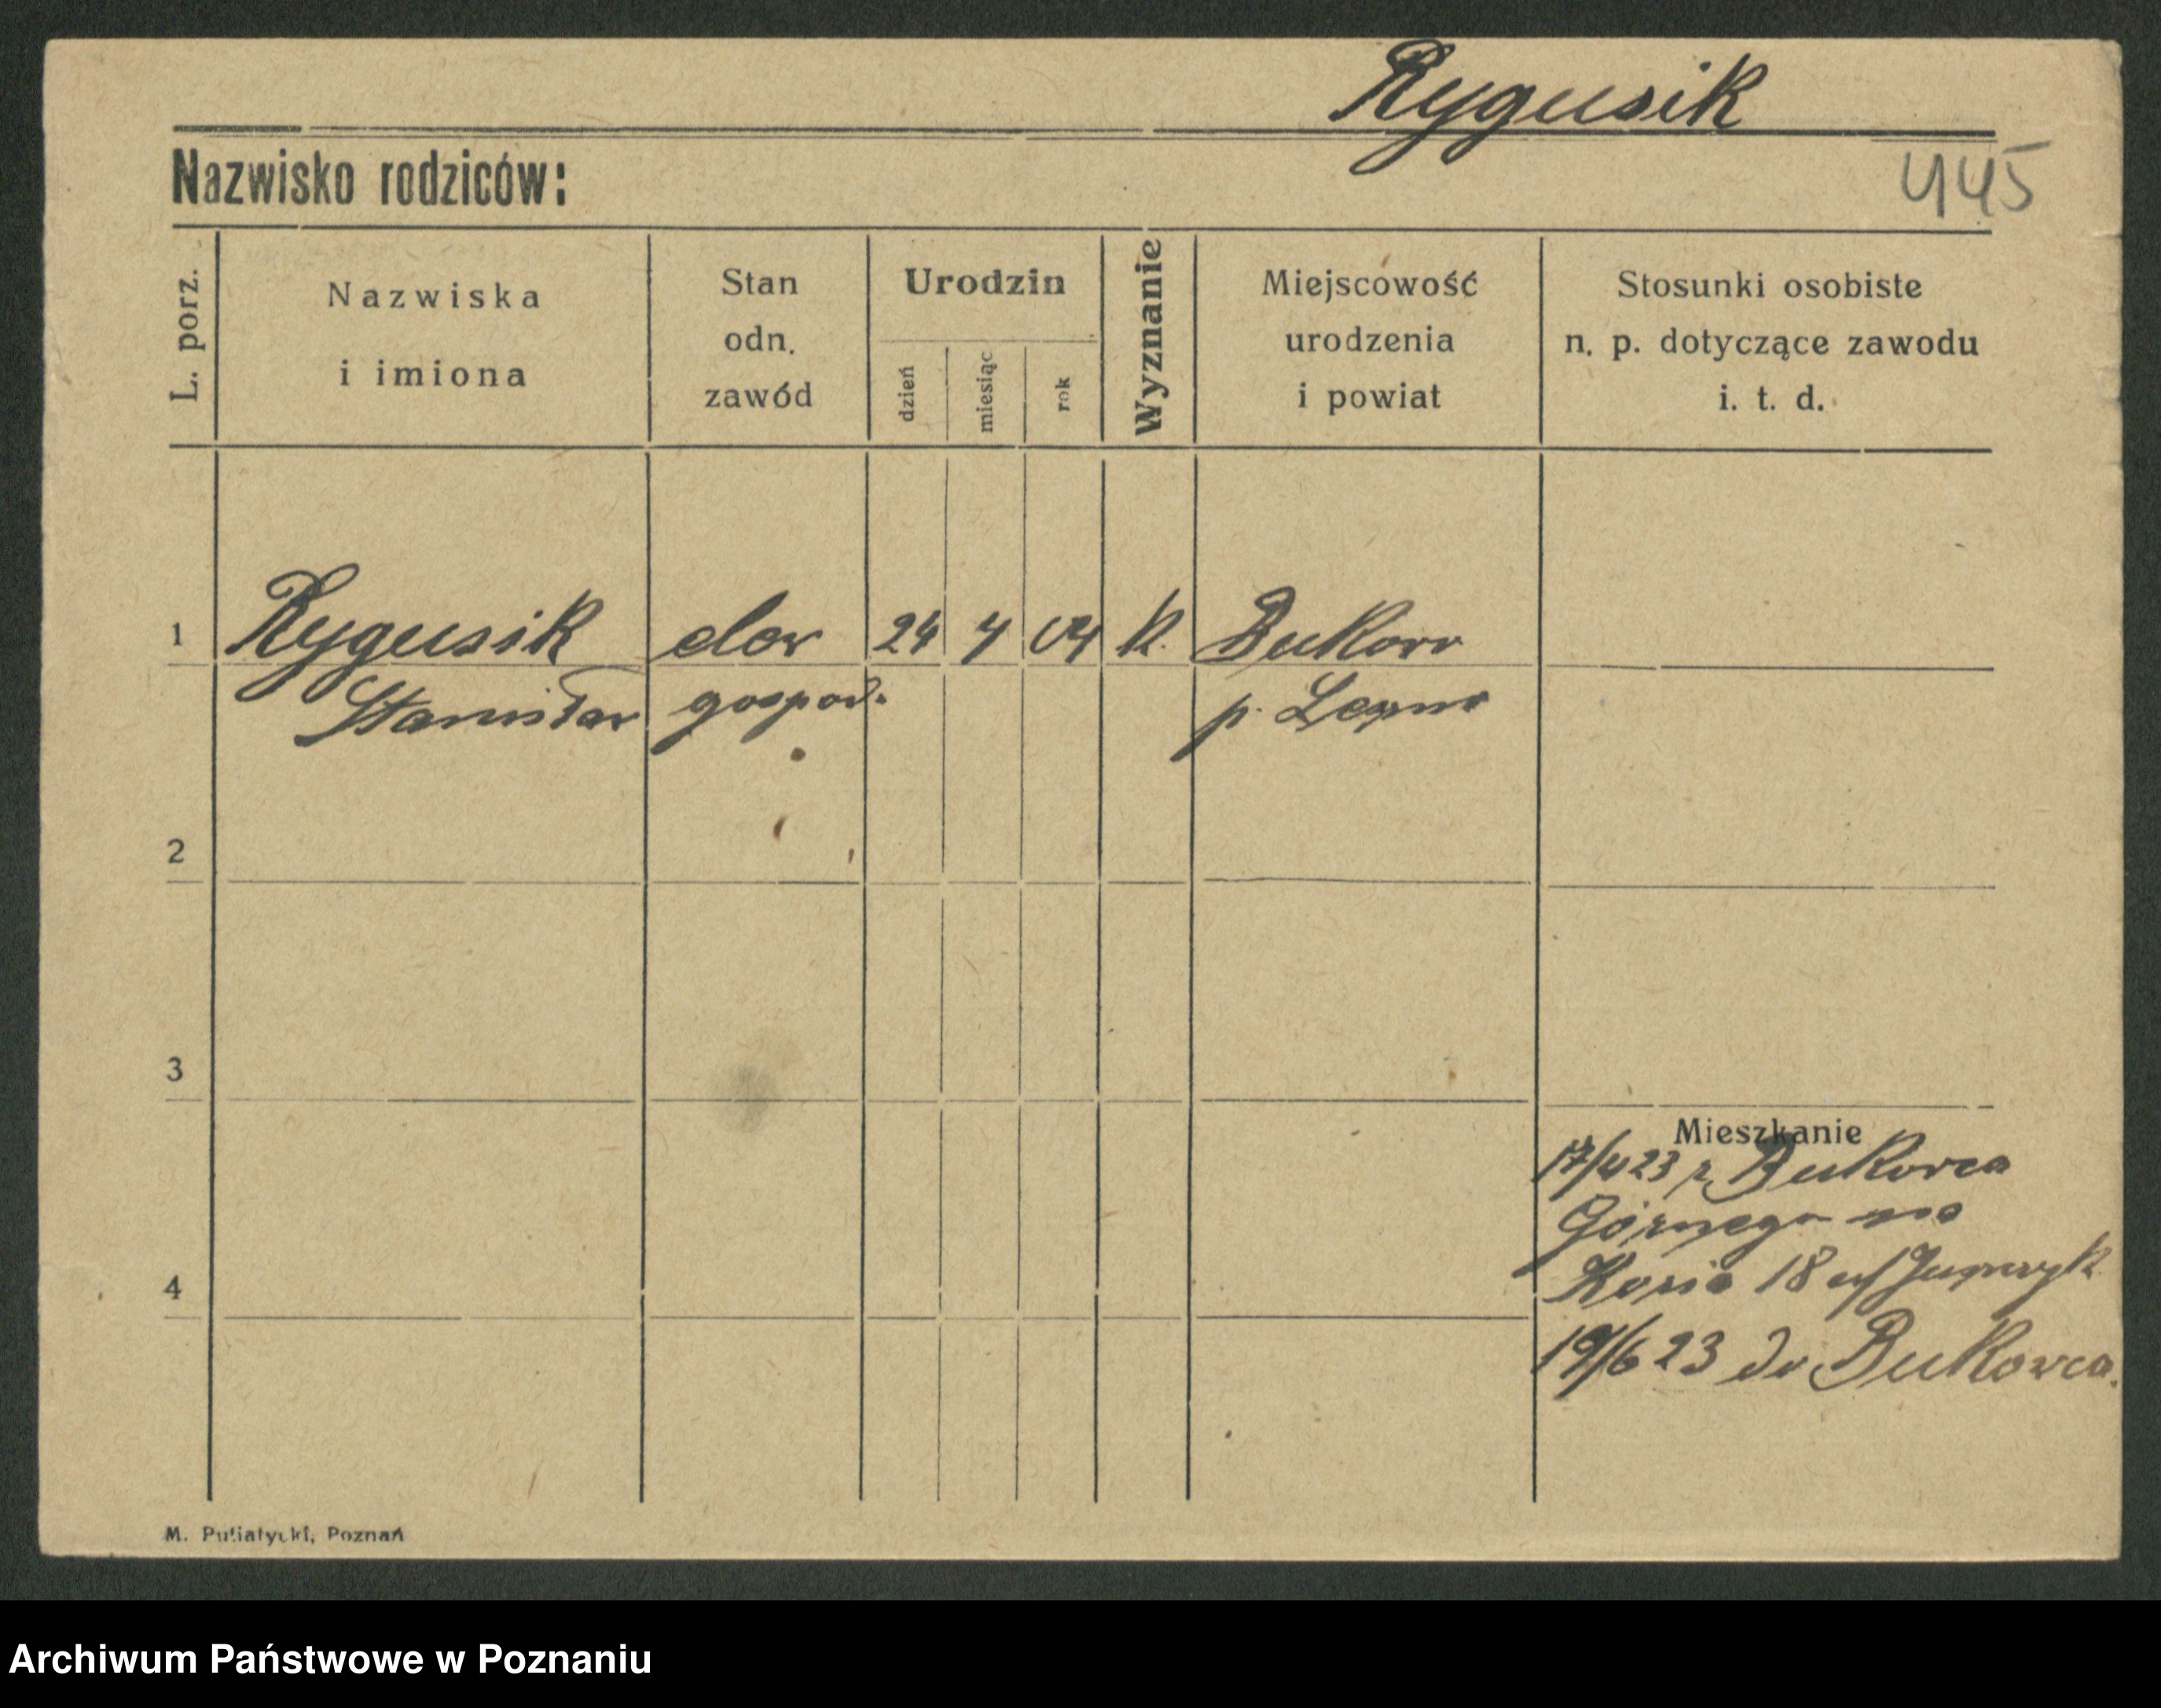 Rygusik
445
Nazwisko rodziców:
L. porz.
Nazwiska
i imiona
Stan
odn.
zawód
Urodzin
dzień
miesiąc
rok
Wyznanie
Miejscowość
urodzenia
i powiat
Stosunki osobiste
n. p. dotyczące zawodu
i. t. d.
1 Rygusik 24 4 04 k. Bukow
Stanisław gospod. p. Leszno
2
3
Mieszkanie
17/4 23 z Bukowca
Górnego na
4
18
19/6 23 do Bukowca.
M. Putiatycki, Poznań
Archiwum Państwowe w Poznaniu